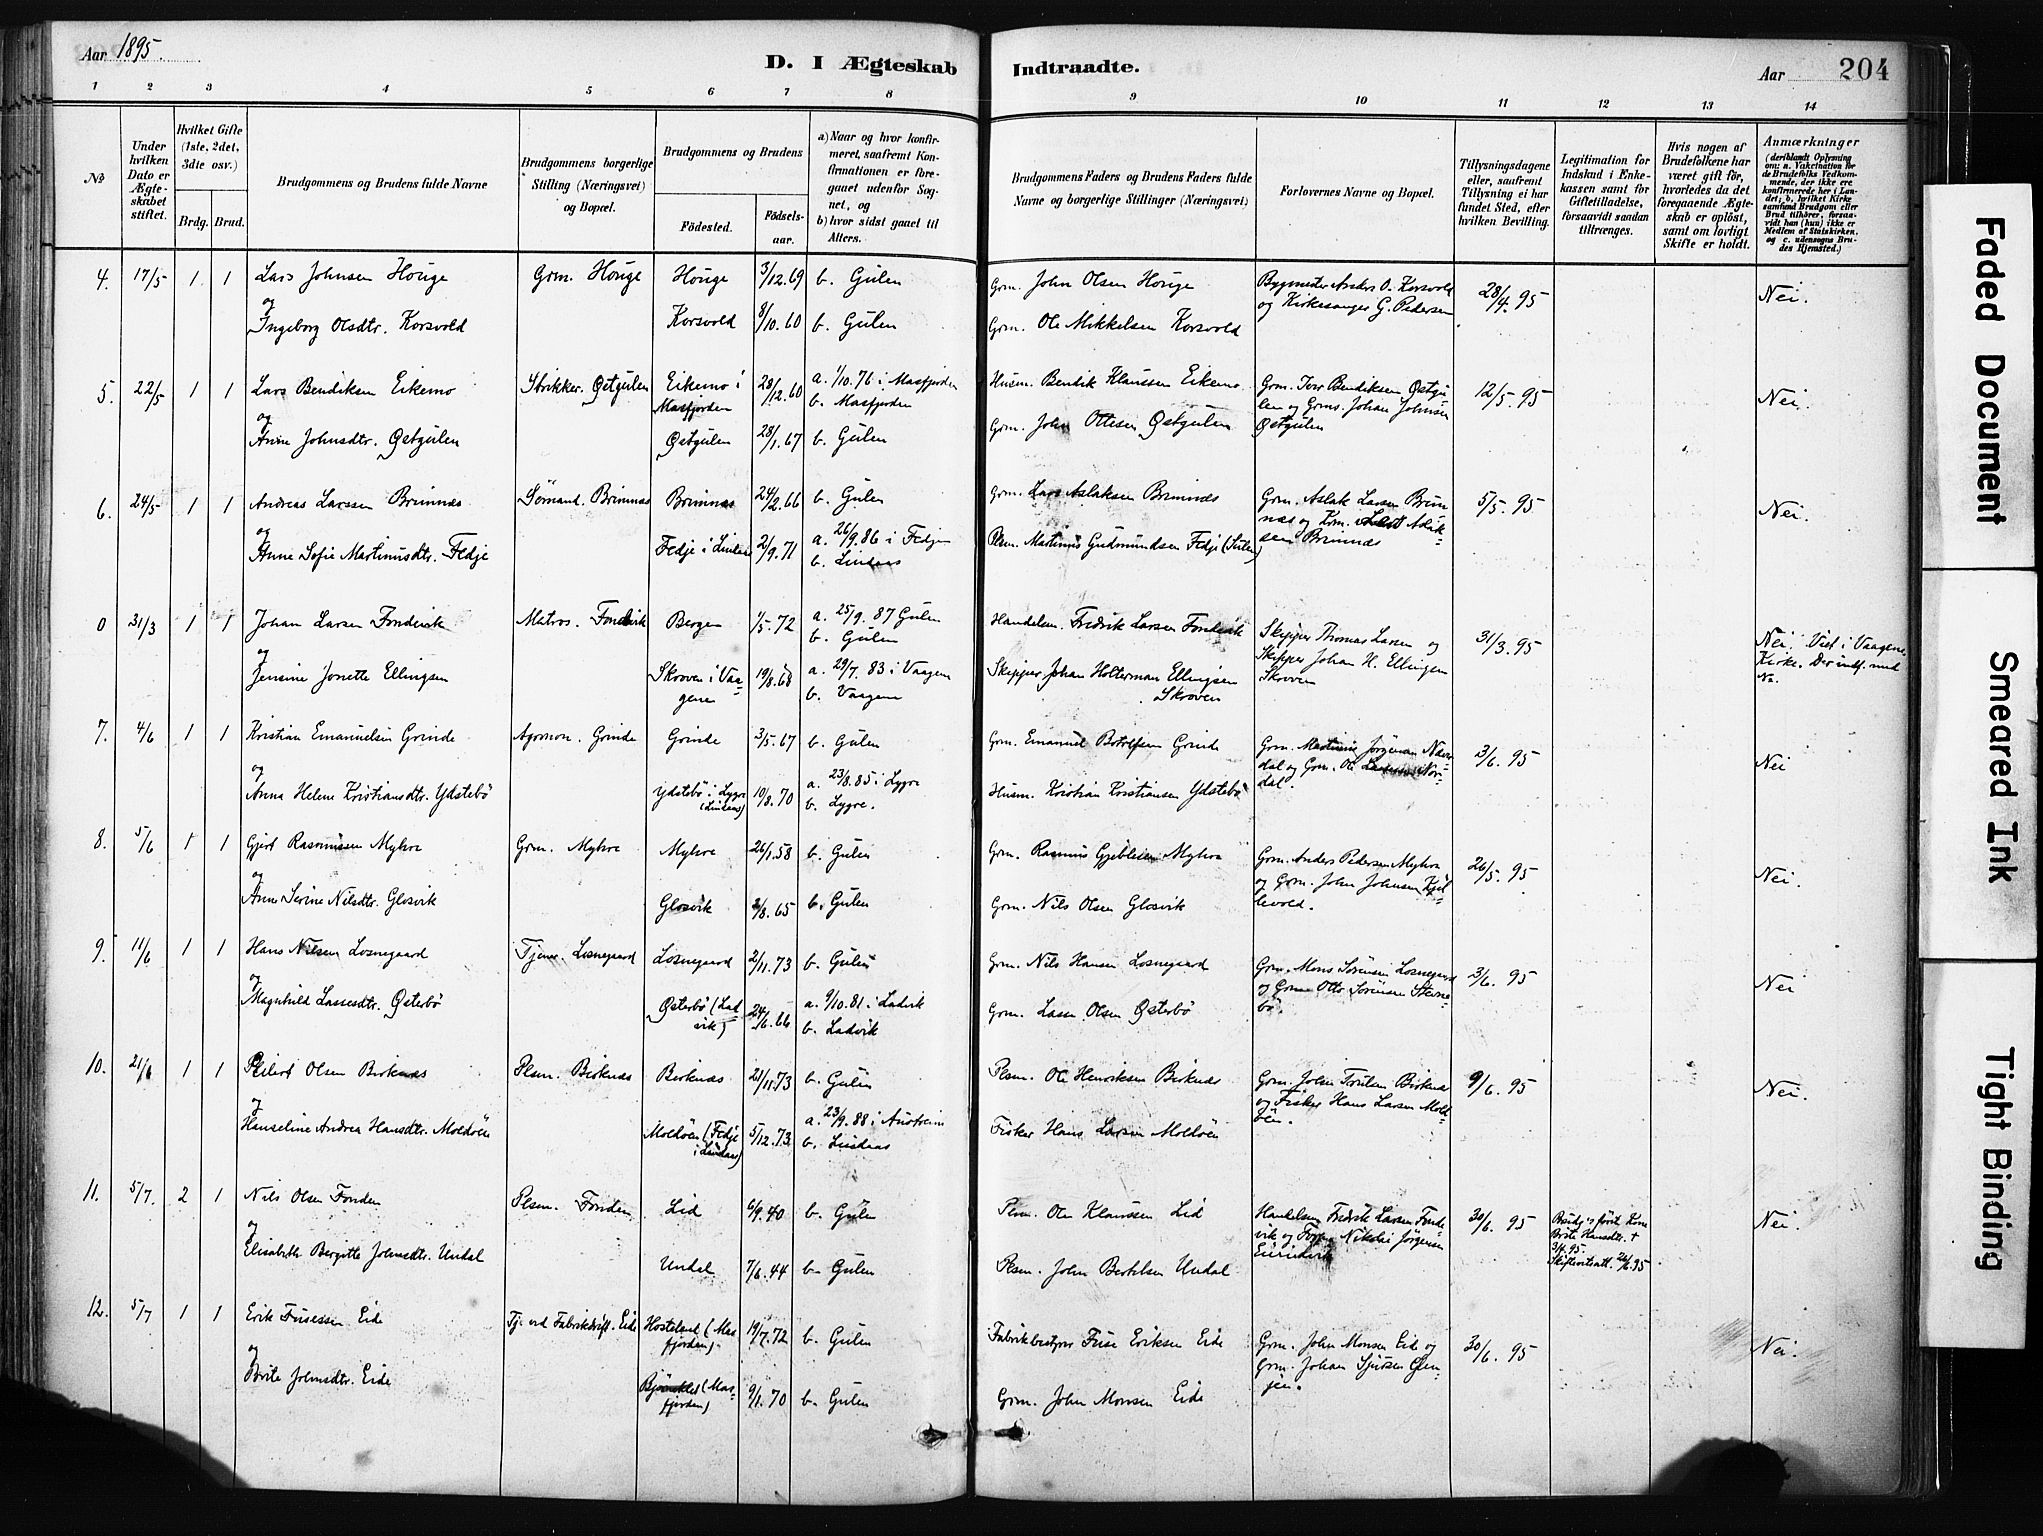 Aar 1895.
D. I Ægteskab Indtraadte.
Aar 204
1 2 3 4 5 6 7 8 9 10 11 12 13 14
No
Under hvilken Dato er Ægteskabet stiftet.
Hvilket Gifte (1ste, 2det, 3die osv.)
Brdg. Brud.
Brudgommens og Brudens fulde Navne
Brudgommens borgerlige Stilling (Næringsvei) og Bopæl.
Brudgommens og Brudens
Fødested. Fødselsaar.
a) Naar og hvor konfirmeret, saafremt Konfirmationen er foregaaet udenfor Sognet, og
b) hvor sidst gaaet til Alters.
Brudgommens Faders og Brudens Faders fulde Navne og borgerlige Stillinger (Næringsvei)
Forlovernes Navne og Bopæl.
Tillysningsdagene eller, saafremt Tillysning ei har fundet Sted, efter hvilken Bevilling.
Legitimation for Indskud i Enkekassen samt for Giftetilladelse, forsaavidt saadan tiltrænges.
Hvis nogen af Brudefolkene har været gift før, hvorledes da det foregaaende Ægteskab er opløst, samt om lovligt Skifte er holdt.
Anmærkninger
(deriblandt Oplysning om: a. Vakcination for de Brudefolks Vedkommende, der ikke ere konfirmerede her i Landet; b. hvilket Kirkesamfund Brudgom eller Brud tilhører, forsaavidt han (hun) ikke er Medlem af Statskirken, og c. udensogns Brudes Hjemsted.)
4. 17/5 1 1 Lars Johnsen Houge Grm. Houge Houge 3/12.69 b. Gulen Grm. John Olsen Houge Bygmester Anders O. Korsvold 28/4. 95 Nei.
og og Kirkesanger G. Pedersen
Ingeborg Olsdtr. Korsvold Korsvold 8/10.60 b. Gulen Grm. Ole Mikkelsen Korsvold
5. 22/5 1 1 Lars Bendiksen Eikemo Strikker. Østgulen Eikemo i Masfjorden 28/12.60 a. 1/10.76 i Masfjorden Husm. Bendik Klaussen Eikemo Grm. Iver Bendiksen Østgu- 12/5. 95 Nei.
og b. Masfjorden len og Grms. Johan Johnsen
Anne Johnsdtr. Østgulen Østgulen 28/1.67 b. Gulen Grm. John Ottesen Østgulen Østgulen
6. 24/5 1 1 Andreas Larssen Brimnæs Sømand. Brimnæs Brimnæs 24/2.66 b. Gulen Grm. Lars Aslaksen Brimnæs Grm. Aslak Larsen Brim- 5/5. 95 Nei.
og a. 26/9.86 i Fedje næs og
Anne Sofie Martinusdtr. Fedje Fedje i Lindaas 2/9.71 b. Lindaas Plsm. Martinus Gudmundsen Fedje Brimnæs
0 31/3 1 1 Johan Larsen Fondevik Matros. Fondevik Bergen 1/5.72 a. 25/9.87 Gulen Handelsm. Fredrik Larsen Fondevik Skipper Thomas Larsen og 31/3.95 Nei. Viet i Vaagene
og b. Gulen Skipper Johan H. Ellingsen Kirke. Der indf. med
Jensine Jonette Ellingsen Skroven i Vaagene 19/8.68 a. 29/7.83 i Vaagene Skipper Johan Holterman Ellingsen Skroven No.
b. Vaagene Skroven
7. 4/6 1 1 Kristian Emanuelsen Grinde Agronom. Grinde Grinde 3/5.67 b. Gulen Grm. Emanuel Botolfsen Grinde Grm. Martinus Jørgensen 3/6. 95 Nei
og a. 23/8.85 i Lygre dal og Grm. Ole Nordal.
Anna Helene Kristiansdtr. Ydstebö Ydstebö i Lygre (Lindaas) 10/8.70 b. Lygre. Husm. Kristian Kristiansen Ydstebö
8. 5/6 1 1 Gjert Rasmussen Myhre Grm. Myhre Myhre 26/1.58 b. Gulen Grm. Rasmus Myhre Grm. Anders Pedersen Myhre 26/5. 95 Nei.
og og Grm. John Johnsen
Anne Serine Nilsdtr. Glosvik Glosvik /8.65 b. Gulen Grm. Nils Olsen Glosvik
9. 11/6 1 1 Hans Nilsen Losnegaard Tjener. Losnegaard Losnegaard 2/11.73 b. Gulen Grm. Nils Hansen Losnegaard Grm. Mons Sørensen Losnegaard 3/6. 95 Nei
og og Grm. Otto Sørensen
Magnhild Lassesdtr. Østerbö Østerbö (Ladvik) 24/6.66 a. 9/10.81 i Ladvik Grm. Lasse Olsen Østerbö
b. Ladvik
10. 21/6 1 1 Olsen Birknæs Plsm. Birknæs Birknæs 21/11.73 b. Gulen Plsm. Ole Henriksen Birknæs Grm. John Birknæs 9/6. 95 Nei.
og a. 23/9.88 i Austreim og Fisker Hans Larsen Mold-
Hanseline Andrea Hansdtr. Moldöen Moldöen (Fedje i Lindaas) 5/12.73 b. Lindaas Fisker Hans Larsen Moldöen öen.
11. 5/7. 2 1 Nils Olsen Fonden Plsm. Fonden Lid 6/9.40 b. Gulen Plsm. Ole Klaussen Lid Handelsm. Fredrik Larsen Fonde- 30/6. 95 Brudg.s første Kone Nei.
og vik og Nikolai Jørgensen Brite Hansdtr. †
Elisabeth Bergitte Johnsdtr. Undal Undal 7/6.44 b. Gulen Plsm. John Bertelsen Undal Eivindvik 3/4.95.
Skifteattest. 26/6.95
12. 5/7 1 1 Erik Fusessen Eide Tj. ved Fabrikdrift. Eide Hosteland (Masfjorden). 19/7.72 b. Gulen Fabrikbestyrer Fuse Eriksen Eide Grm. John Monsen Eide og 30/6. 95 Nei.
og Grm. Johan Sjursen
Brite Johnsdtr. Eide (Masfjorden) 9/1.70 b. Gulen Grm. John Monsen Eide
Faded Document
Smeared Ink
Tight Binding